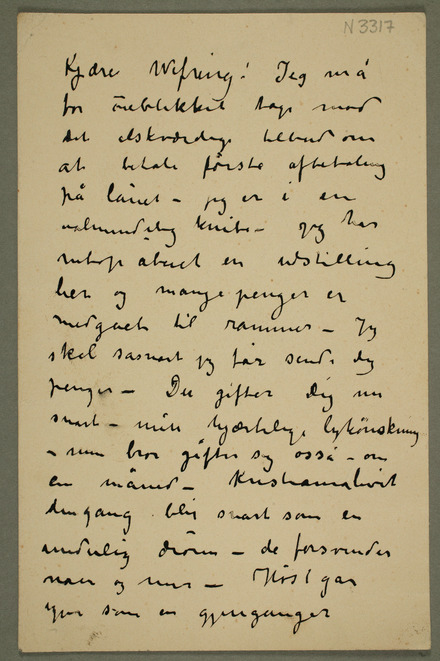 N 3317
Kjære Wefring! Jeg må
for öieblikket tage mod
det elskværdige tilbud om
at betale første afbetaling
på lånet – jeg er i en
ualmindelig knibe – jeg har
netop åbnet en udstilling
her og mange penger er
medgået til rammer – Jeg
skal sasnart jeg får sende dig
penger – Du gifter dig nu
snart – min hjærtelige lykönskning
– min bror gifter sig også – om
en måned – Kristianialivet
dengang blir snart som en
underlig dröm – de forsvinder
 og – Høst går
 som en gjenganger